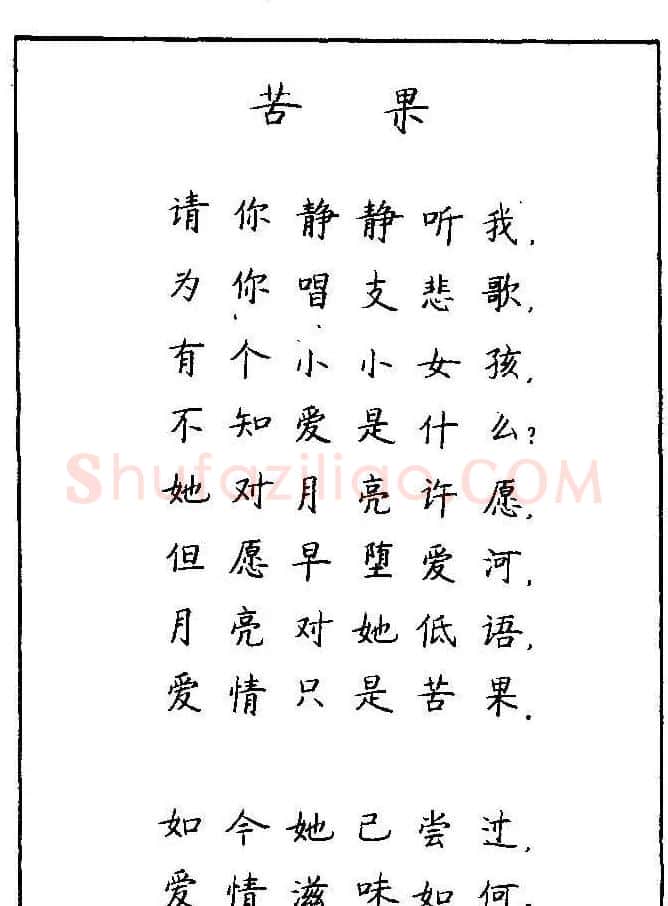 苦 果
请你静静听我，
为你唱支悲歌，
有个小小女孩，
不知爱是什么？
Shufaziliao.COM
她对月亮许愿，
但愿早堕爱河，
月亮对她低语，
爱情只是苦果．
如今她已尝过，
爱情滋味如何，